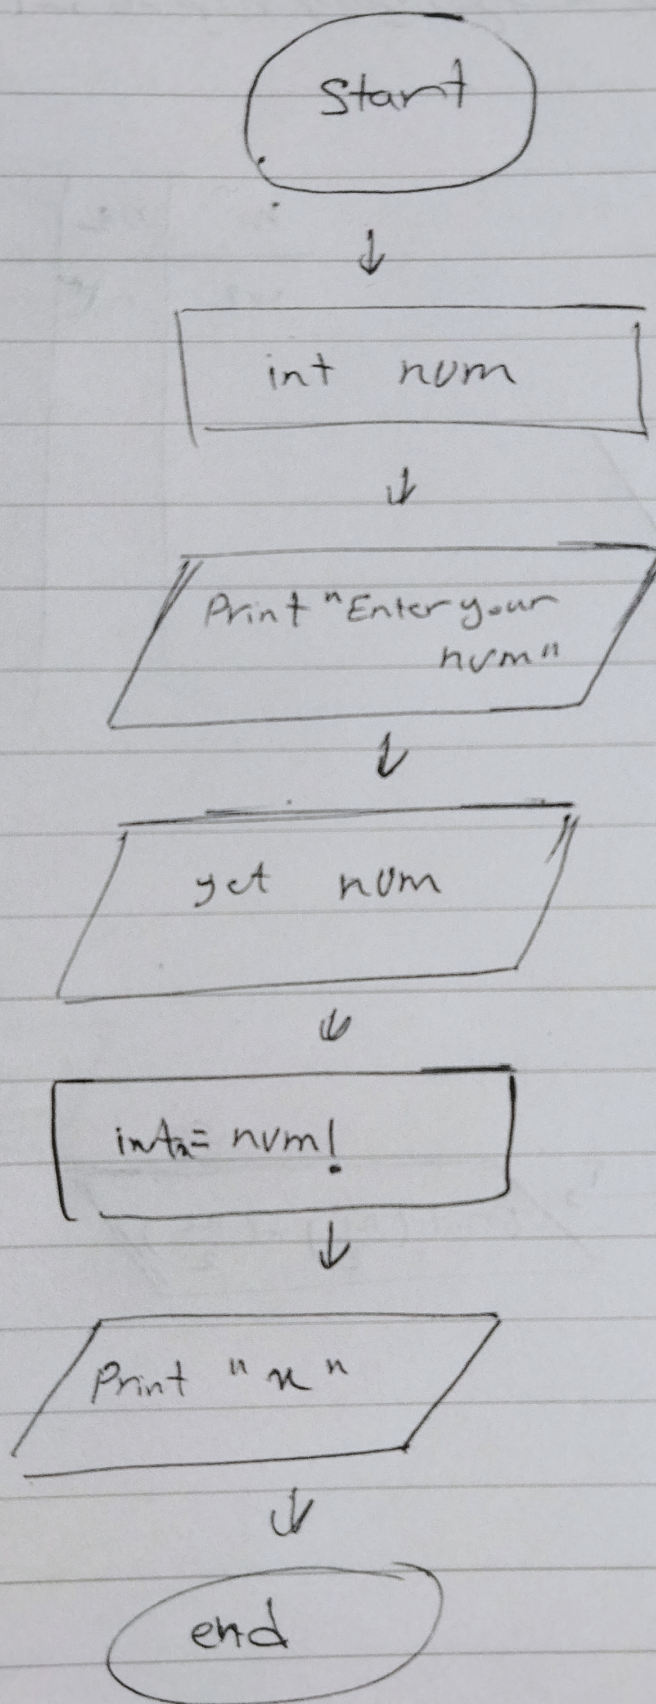 Start
int num
Print "Enter your
num"
get num
int x = num!
Print "x"
end